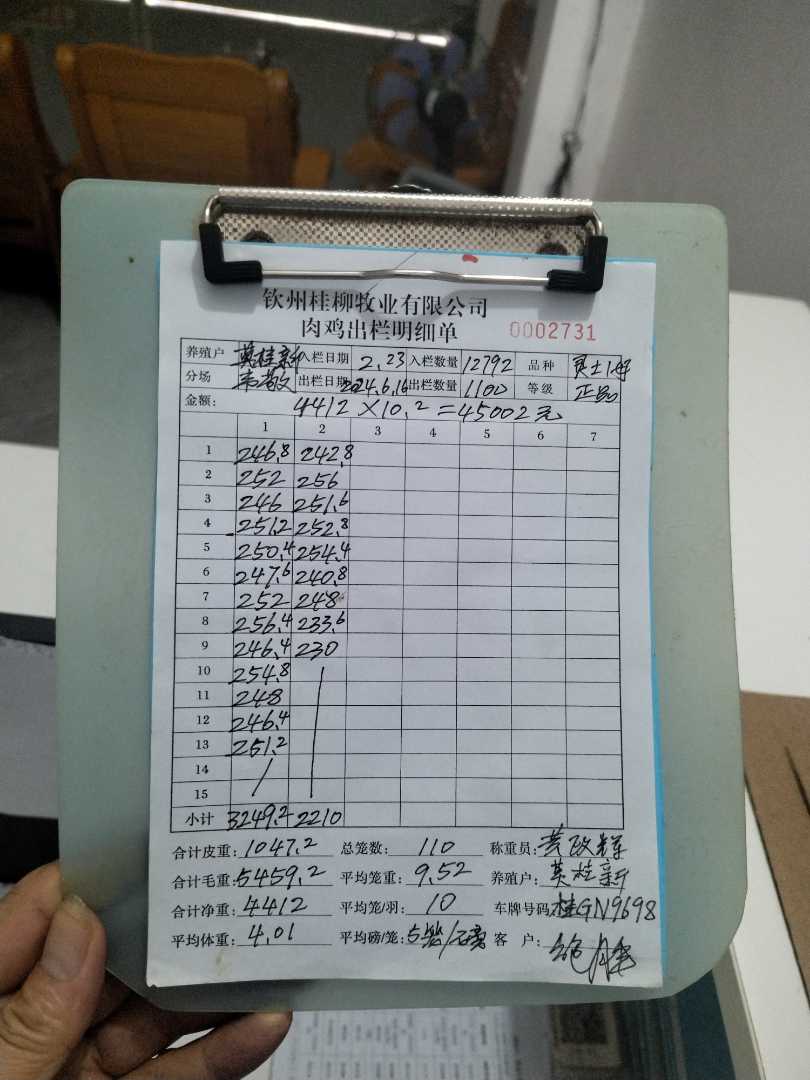 钦州桂柳牧业有限公司
肉鸡出栏明细单 0002731
养殖户 英桂新 入栏日期 2.23 入栏数量 12792 品种
分场 韦敬文 出栏日期 2024.6.16 出栏数量 1100 等级 正品
金额: 4412×10.2=45002元
1 2 3 4 5 6 7
1 246.8 242.8
2 252 256
3 246 251.6
4 251.2 252.8
5 250.4 254.4
6 247.6 240.8
7 252 248
8 256.4 233.6
9 246.4 230
10 254.8
11 248
12 246.4
13 251.2
14
15
小计 3249.2 2210
合计皮重: 1047.2 总笼数: 110 称重员:
合计毛重: 5459.2 平均笼重: 9.52 养殖户: 英桂新
合计净重: 4412 平均笼/羽: 10 车牌号码: 桂GN9698
平均体重: 4.01 平均磅/笼: 5笼/磅 客户: